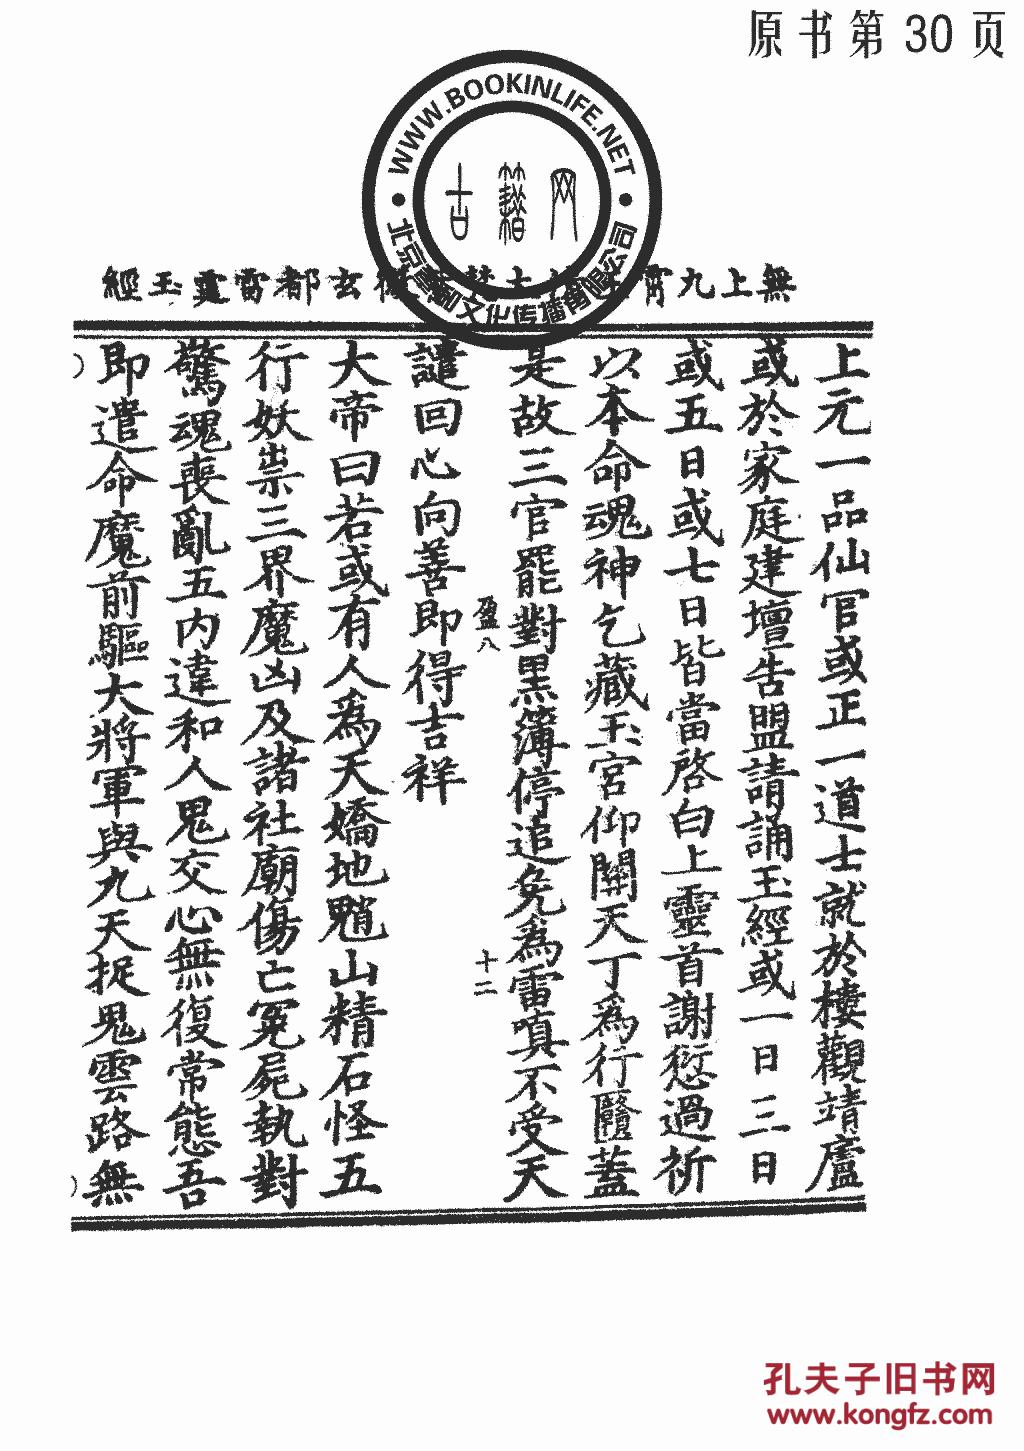 原书第30页
WWW.BOOKINLIFE.NET
古籍网
無上九霄
玄都雷霆玉經
上元一品仙官或正一道士就於樓觀靖廬
或於家庭建壇告盟請誦玉經或一日三日
或五日或七日皆當啓白上靈首謝愆過祈
以本命魂神乞藏玉宮仰關天丁為行醫蓋
是故三官罷對黑簿停追免為雷嗔不受天
盈八
十二
譴回心向善即得吉祥
大帝曰若或有人為天嬌地魈山精石怪五
行妖祟三界魔凶及諸社廟傷亡冤屍執對
驚魂喪亂五内違和人鬼交心無復常態吾
即遣命魔前驅大將軍與九天捉鬼雲路無
孔夫子旧书网
www.kongfz.com